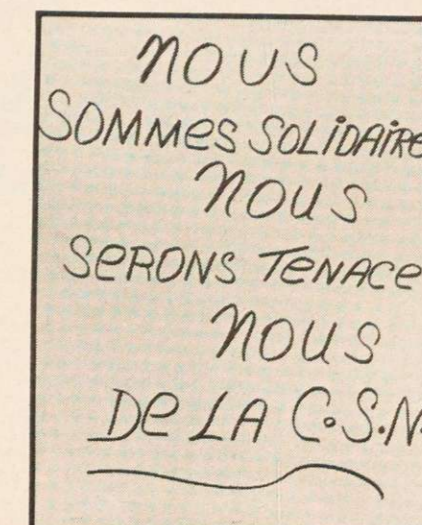 NOUS
SOMMES SOLIDAIRE
NOUS
SERONS TENACE
NOUS
DE LA C.S.N.